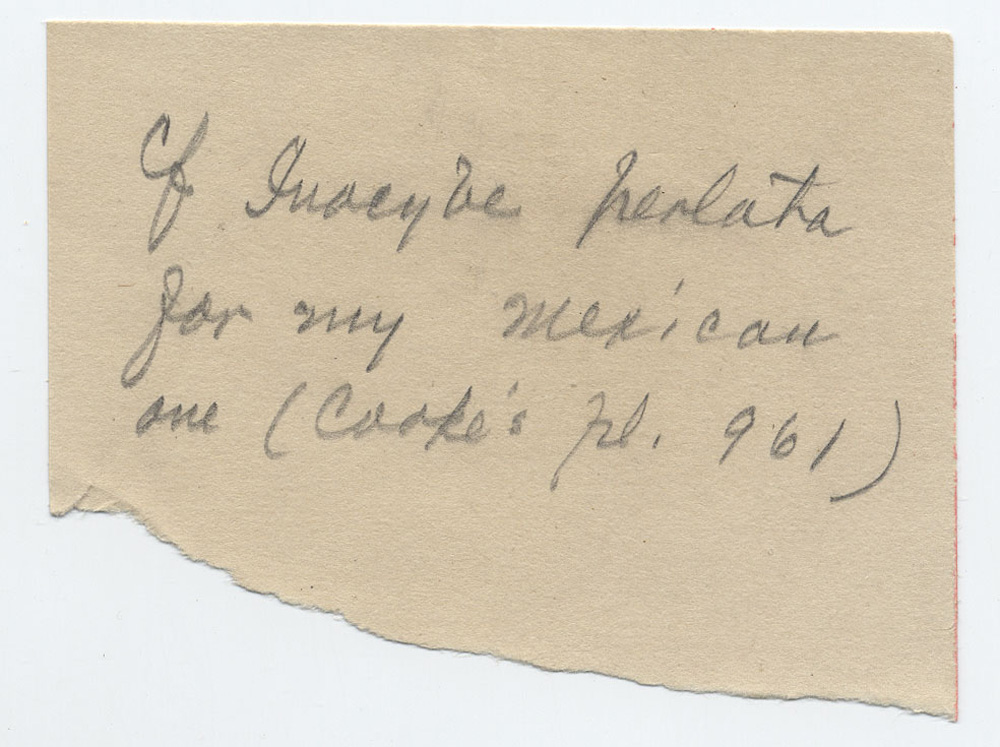 Cf Inocybe perlata
for my Mexican
one (Cooke's pl. 961)